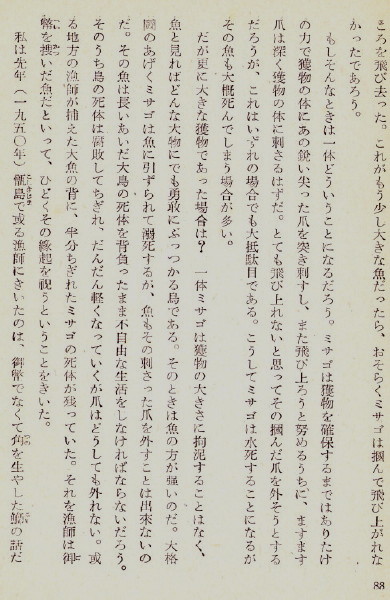 ころを飛び去った。これがもう少し大きな魚だったら、おそらくミサゴは掴んで飛び上がれな
かったであろう。
もしそんなときは一体どういうことになるだろう。ミサゴは獲物を確保するまではありたけ
の力で獲物の体にあの鋭い尖った爪を突き刺すし、また飛び上ろうと努めるうちに、ますます
爪は深く獲物の体に刺さるはずだ。とても飛び上れないと思ってその掴んだ爪を外そうとする
だろうが、これはいずれの場合でも大抵駄目である。こうしてミサゴは水死することになるが
その魚も大概死んでしまう場合が多い。
だが更に大きな獲物であった場合は？　一体ミサゴは獲物の大きさに拘泥することはなく、
魚と見ればどんな大物にでも勇敢にぶっつかる鳥である。そのときは魚の方が強いのだ。大格
闘のあげくミサゴは魚に引ずられて溺死するが、魚もその刺さった爪を外すことは出来ないの
だ。その魚は長いあいだ大鳥の死体を背負ったまま不自由な生活をしなければならないだろう。
そのうち鳥の死体は腐敗してちぎれ、だんだん軽くなっていくが爪はどうしても外れない。或
る地方の漁師が捕えた大魚の背に、半分ちぎれたミサゴの死体が残っていた。それを漁師は御
幣を捜いだ魚だといって、ひどくその縁起を祝うということをきいた。
私は先年（一九五〇年）甑島で或る漁師にきいたのは、御幣でなくて角を生やした鱶の話だ
88